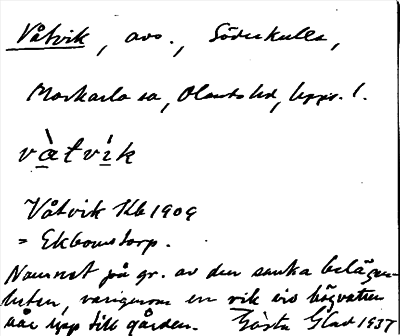 Våtvik, avs., Söderkulla,
Morkarla sn, Olands hd, Upps. l.
vàtvík
Våtvik Kb 1909
= Ekbomstorp.
Namnet på gr. av den sanka belägen-
heten, varigenom en vik vis högvatten
når upp till gården. Gösta Glad 1937